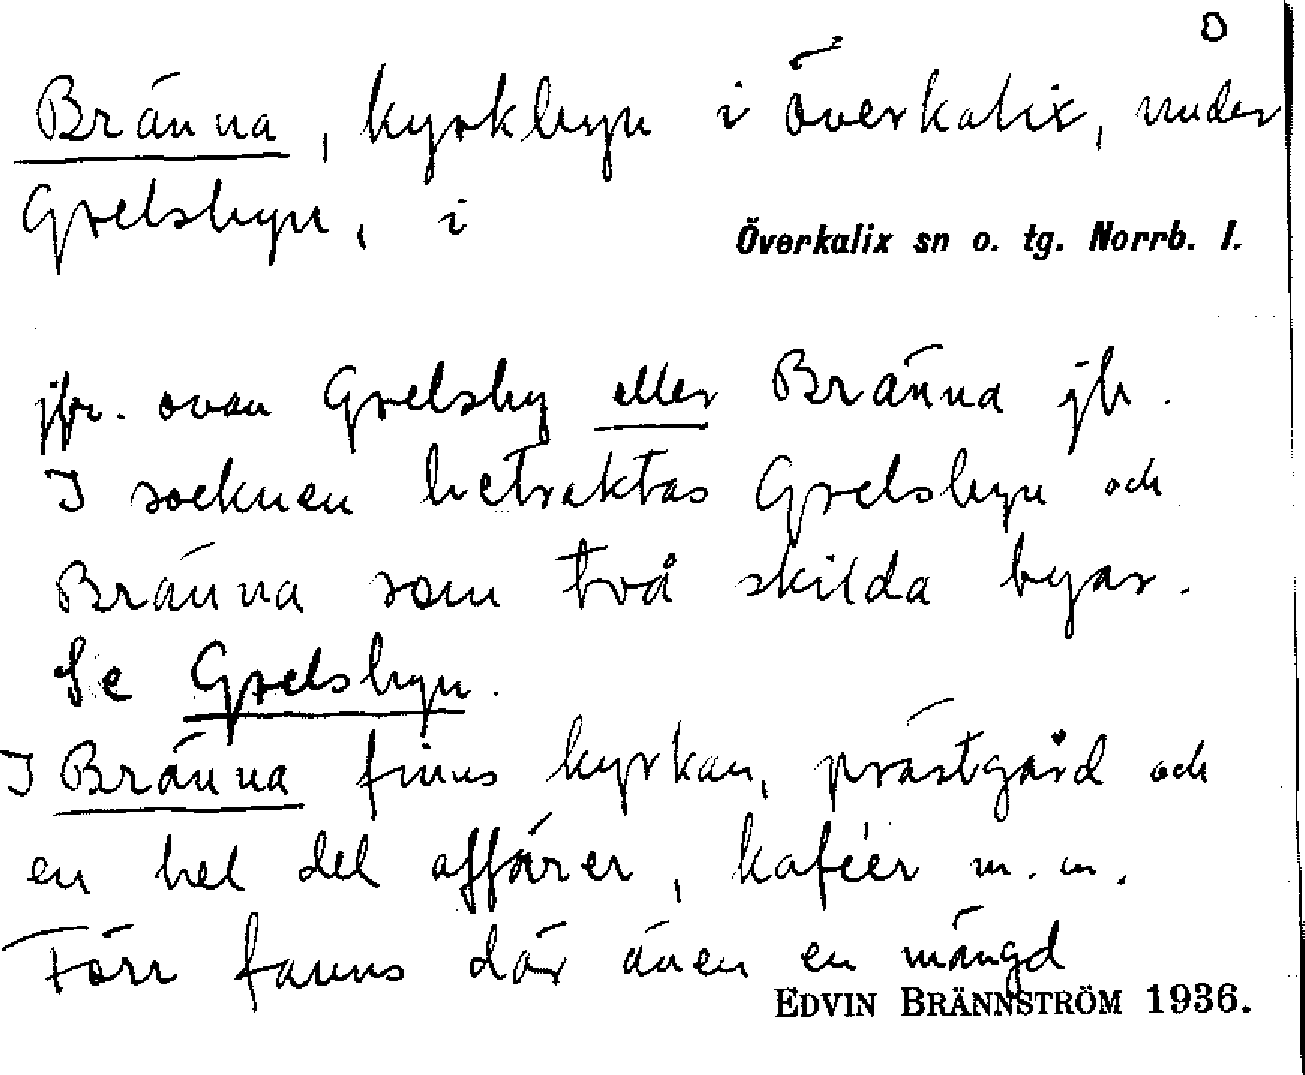 O
Bränna, kyrkbyn i Överkalix, under
Grelsbyn, i
Överkalix sn o. tg. Norrb. l.
jfr. ovan Grelsby eller Bränna jb.
I socknen betraktas Grelsbyn och
Bränna som två skilda byar.
Se Grelsbyn.
I Bränna finns kyrkan, prästgård och
en hel del affärer, kaféer m. m.
Förr fanns där även en mängd
EDVIN BRÄNNSTRÖM 1936.